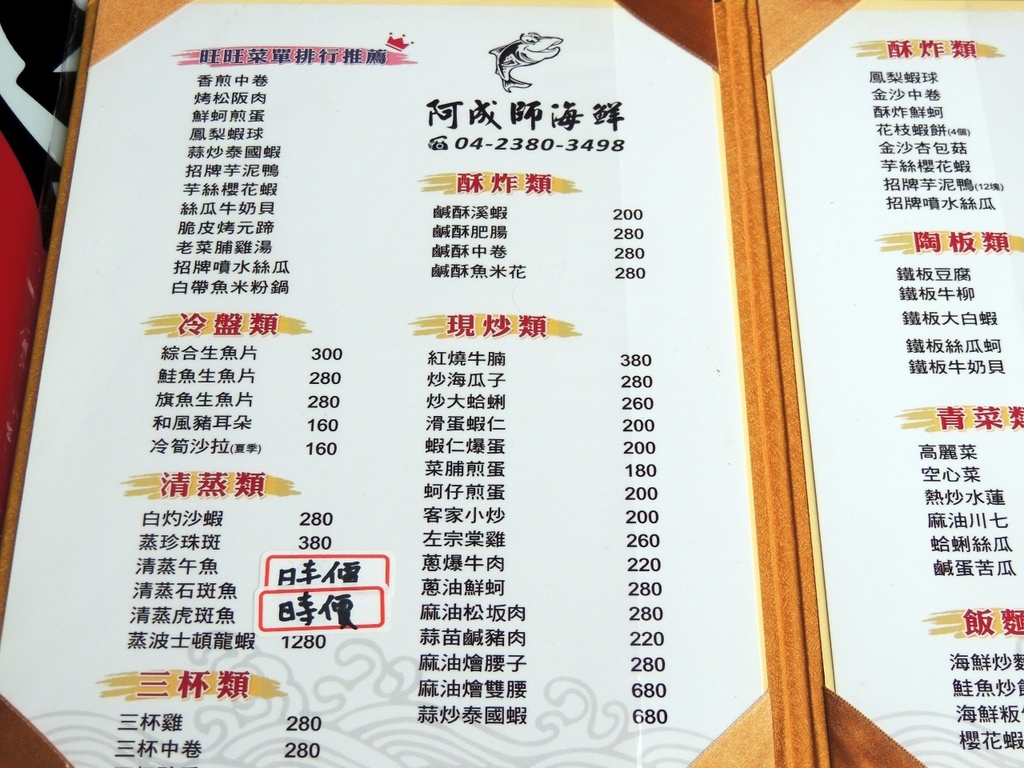 旺旺菜單排行推薦
香煎中卷
烤松阪肉
鮮蚵煎蛋
鳳梨蝦球
蒜炒泰國蝦
招牌芋泥鴨
芋絲櫻花蝦
絲瓜牛奶貝
脆皮烤元蹄
老菜脯雞湯
招牌噴水絲瓜
白帶魚米粉鍋
冷盤類
綜合生魚片 300
鮭魚生魚片 280
旗魚生魚片 280
和風豬耳朵 160
冷筍沙拉(夏季) 160
清蒸類
白灼沙蝦 280
蒸珍珠斑 380
清蒸午魚 時價
清蒸石斑魚
清蒸虎斑魚 時價
蒸波士頓龍蝦 1280
三杯類
三杯雞 280
三杯中卷 280
阿成師海鮮
04-2380-3498
酥炸類
鹹酥溪蝦 200
鹹酥肥腸 280
鹹酥中卷 280
鹹酥魚米花 280
現炒類
紅燒牛腩 380
炒海瓜子 280
炒大蛤蜊 260
滑蛋蝦仁 200
蝦仁爆蛋 200
菜脯煎蛋 180
蚵仔煎蛋 200
客家小炒 200
左宗棠雞 260
蔥爆牛肉 220
蔥油鮮蚵 280
麻油松坂肉 280
蒜苗鹹豬肉 220
麻油燴腰子 280
麻油燴雙腰 680
蒜炒泰國蝦 680
酥炸類
鳳梨蝦球
金沙中卷
酥炸鮮蚵
花枝蝦餅(4個)
金沙杏包菇
芋絲櫻花蝦
招牌芋泥鴨(12塊)
招牌噴水絲瓜
陶板類
鐵板豆腐
鐵板牛柳
鐵板大白蝦
鐵板絲瓜蚵
鐵板牛奶貝
青菜類
高麗菜
空心菜
熱炒水蓮
麻油川七
蛤蜊絲瓜
鹹蛋苦瓜
飯麵
海鮮炒麵
鮭魚炒飯
海鮮粄
櫻花蝦